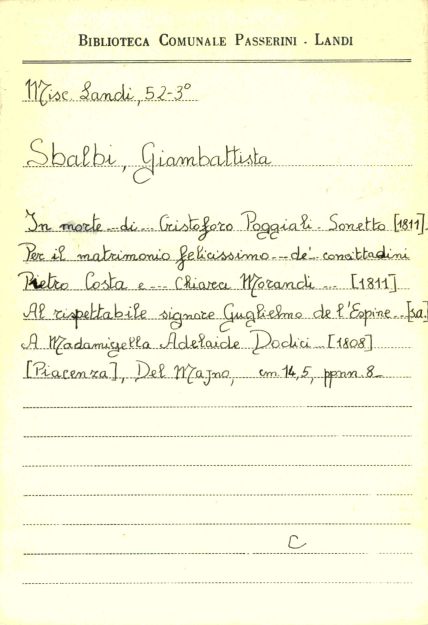 BIBLIOTECA COMUNALE PASSERINI - LANDI
Misc. Landi, 52-3°
Sbalbi, Giambattista
In morte di Cristoforo Poggiali. Sonetto [1811].
Per il matrimonio felicissimo de' concittadini
Pietro Costa e Chiara Morandi [1811]
Al rispettabile signore Guglielmo de l'Espine [sa.]
A Madamigella Adelaide Dodici [1808]
[Piacenza], Del Majno, cm 14,5, ppnn. 8
C